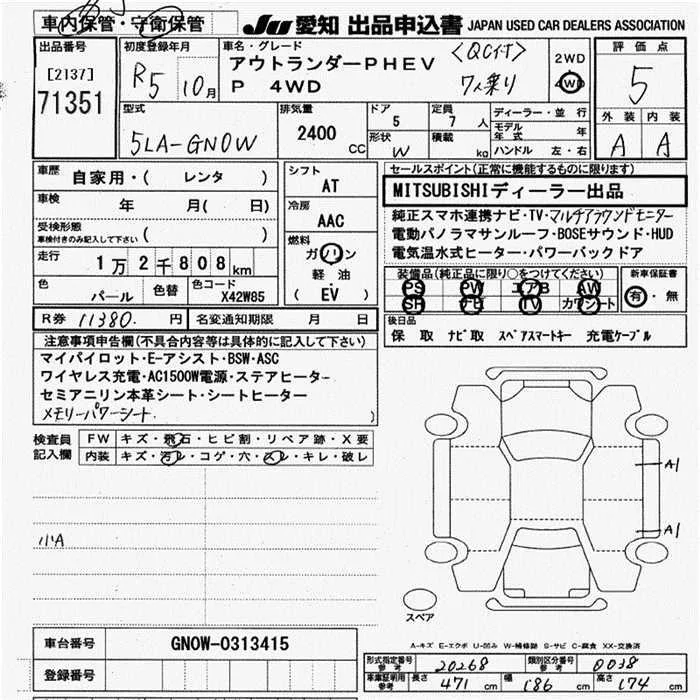 車内保管・守衛保管
JU 愛知 出品申込書 JAPAN USED CAR DEALERS ASSOCIATION
出品番号
[2137]
71351
初度登録年月
R5 10月
車名・グレード
アウトランダーPHEV
P 4WD
7人乗り
2WD
4WD
評価点
5
外装 内装
A A
型式
5LA-GN0W
排気量
2400 CC
ドア
5
形状
W
定員
7 人
積載
kg
ディーラー・並行
モデル年式 年
ハンドル 左・右
車歴
自家用・( レンタ )
車検
年 月( 日)
受検形態
車検付きのみ記入して下さい ( )
走行
1万2千808km
色
パール
色替
色コード
X42W85
シフト
AT
冷房
AAC
燃料
ガソリン
軽油
( EV )
R券 11380. 円
名変通知期限 月 日
セールスポイント(正常に機能するものに限ります)
MITSUBISHIディーラー出品
純正スマホ連携ナビ・TV・マルチアラウンドモニター
電動パノラマサンルーフ・BOSEサウンド・HUD
電気温水式ヒーター・パワーバックドア
装備品(純正品に限り○をつけてください)
PS PW エアB AW
SR ナビ TV カワシート
新車保証書
有・無
後日品
保 取 ナビ取 スペアスマートキー 充電ケーブル
注意事項申告欄(不具合内容等は具体的に記入して下さい)
マイパイロット・E-アシスト・BSW・ASC
ワイヤレス充電・AC1500W電源・ステアヒーター
セミアニリン本革シート・シートヒーター
メモリーパワーシート )
検査員
記入欄
FW キズ・飛石・ヒビ割・リペア跡・X要
内装 キズ・汚レ・コゲ・穴・スレ・キレ・破レ
小A
A1
A1
スペア
車台番号
GN0W-0313415
登録番号
A-キズ E-エクボ U-凹み W-補修跡 S-サビ C-腐食 XX-交換済
形式指定番号 参考 20268
類別区分番号 参考 0038
車庫証明用 参考 長さ 471 cm 幅 186 cm 高さ 174 cm